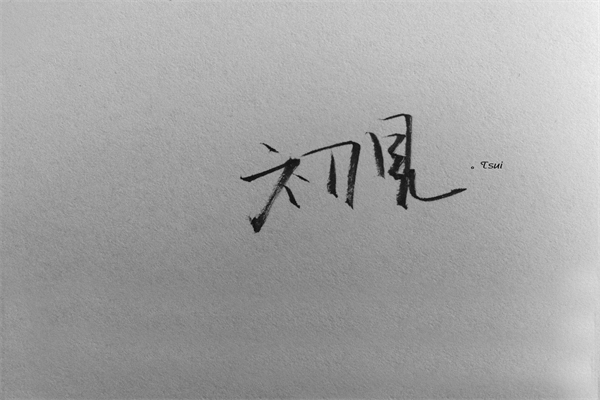 初見 。Tsui